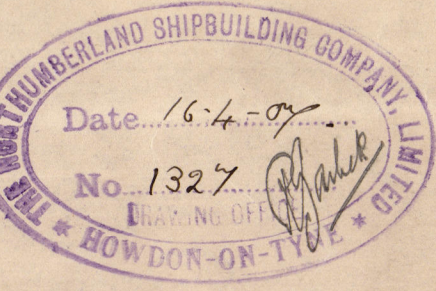 THE NORTHUMBERLAND SHIPBUILDING COMPANY, LIMITED
Date 16-4-07
No 1327
DRAWING OFFICE
* HOWDON-ON-TYNE *